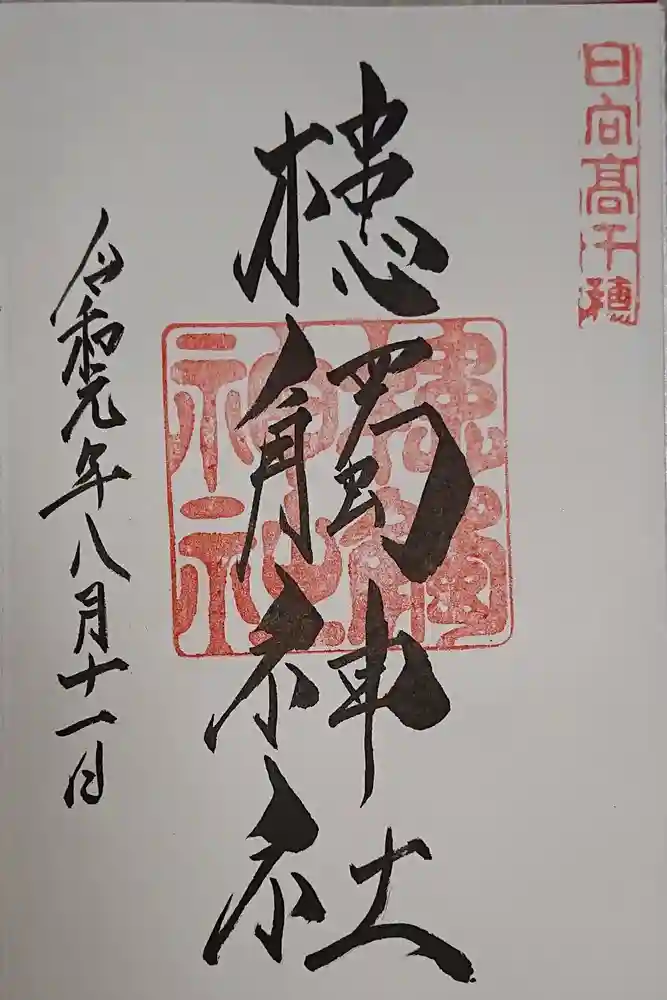 日向高千穂
槵觸神社
槵觸神社
令和元年八月十一日